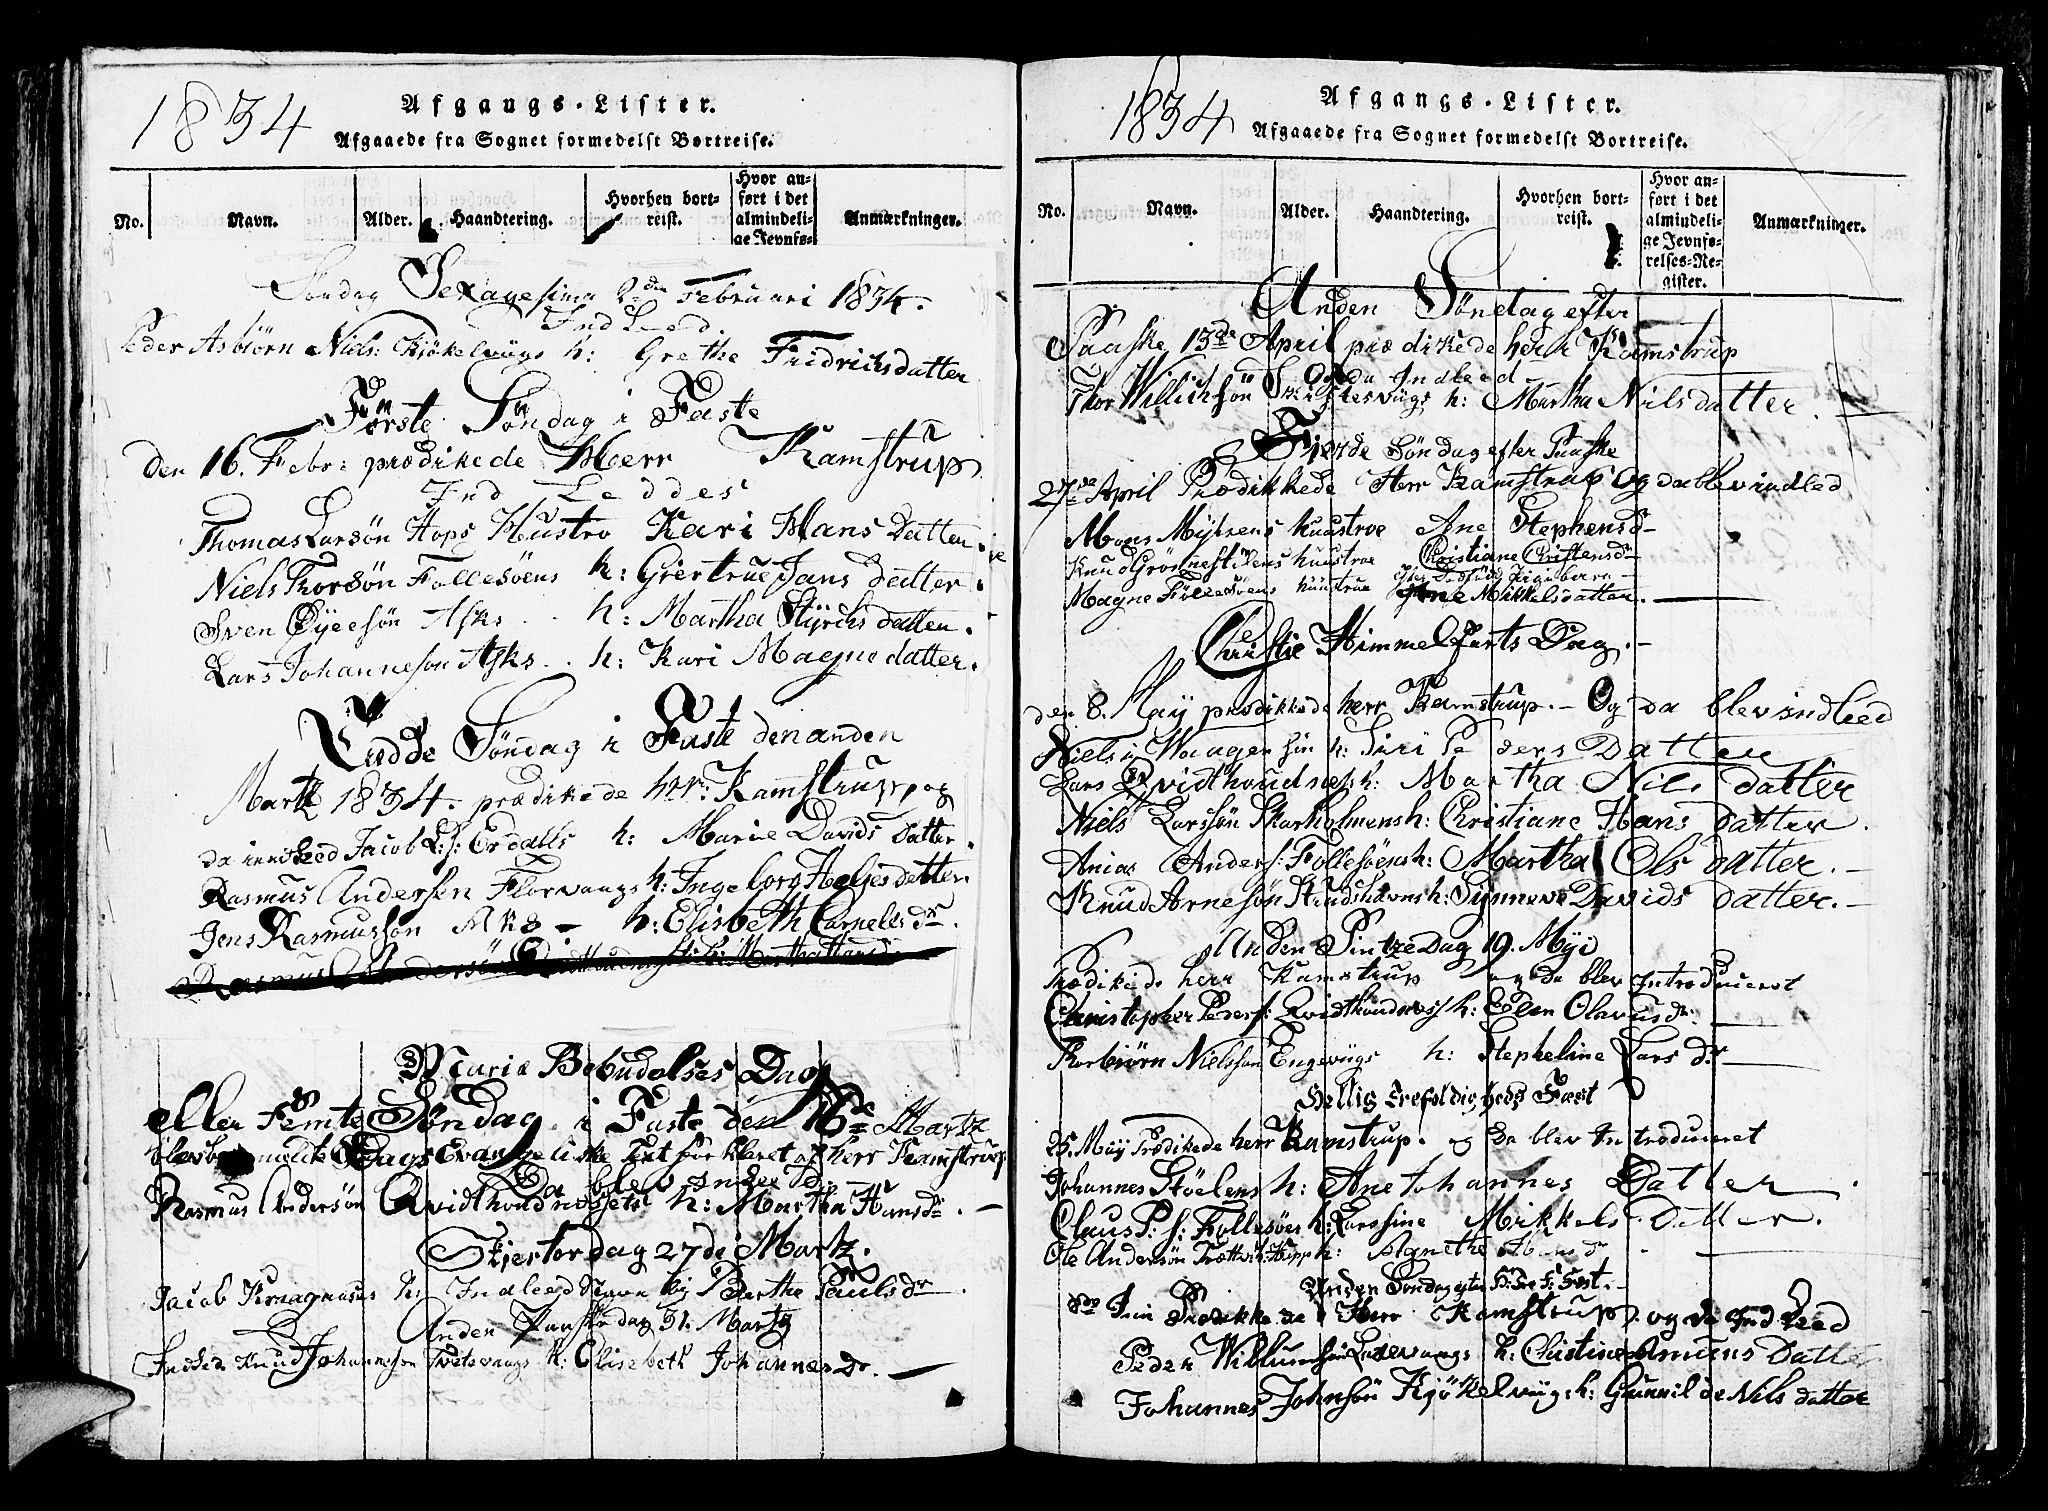 1834
Afgangs-Lister.
Afgaaede fra Sognet formedelst Bortreise.
No.
Navn.
Alder.
Haandtering.
Hvorhen bort-
reist.
Hvor an-
ført i det
almindeli-
ge Jevnfø-
Anmærkninger.
Søndag Sexagesima 2den Februari 1834.
Ind Leed
Peder Asbiørn Niels: Kjøkelvügs h: Grethe Fridrichsdatter
Første Søndag i Faste
den 16. Febr: prædikede Herr Kamstrup
Ind Leddes
Thomas Larsøn Hops Hustro Kari Hans Datter.
Niels Thorsøn Follesøens h: Giertrue Jans datter.
Sven Øyeesøn Asks .. h: Martha Styrchs datter.
Lars Johannesøn Asks .. h: Kari Magne datter.
Tredde Søndag i Faste den anden
Martz 1834. prædikede hr: Kamstrup, og
da indLeed Jacob L: s: Erdalls h: Marie Davids datter.
Rasmus Andersen Florvaags h: Ingeborg Heljes datter
Jens Rasmussøn Ask - h: Elisbeth Cornelis dr.
Mariæ Bebudelses Dag
eller Femte Søndag i Faste den 16de Martz
Dags Evangeliske Text forklaret af herr Kamstrup
Da blev Indleed
Rasmus Andersøn Qvidthoudnessets h: Martha Hansdr. -
Skjertordag 27de Martz.
Jacob Kraagenæsus h: Indleed Navn by Barthe Paulsdr.
Anden Paaskedag 31. Martz
Indled Knud Johannesson Tvetevaags h: Elisebeth Johannes dr.
1834
Afgangs-Lister.
Afgaaede fra Sognet formedelst Bortreise.
No.
Navn.
Alder.
Haandtering.
Hvorhen bort-
reist.
Hvor an-
ført i det
almindeli-
ge Jevnfø-
relses-Re-
gister.
Anmærkninger.
Anden Søndag efter
Paaske 13de April prædikede herr Kamstrup
Og da Indleed
Thor Willichsøn h: Martha Nilsdatter.
Fierde Søndag efter Paaske
27de April Prædikkede Herr Kamstrup Og da blev indled
Mons Myhrens huustroe Ane Stephensd
Knud Grønnestølens huustroe Christiane Christensdr
Magne Follesøens huustrue Ane Mikkelsdatter.
Christie Himmelfarts Dag.
den 8. May prædikkede herr Kamstrup. - Og da blev indleed
Niels i Waagen sin h: Siri Peders Datter
Lars Qvidthoudnæs h: Martha Nils datter
Niels Larssøn Skarholmens h: Christiane Hans datter.
Anias Anders: Follesøens h: Martha Ols datter. -
Knud Arnesøn Strudshavns h: Synneve Davids datter. -
Anden Pintze Dag 19. Myi
Prædikede herr Kamstrup og da blev Introduierst
Christopher Peders: Qvidthoudness h: Elen Olavus dr.
Thorbiørn Nielsson Engevügs h: Stepheline Lars dr
Hellig Trefoldigheds Fæst
25. May Prædikede herr Kamstrup. og da blev Introduceret
Johannes Støelens h: Ane Johannes Datter
Claus P: s: Follesøes h: Larssine Mikkels Datter.
Ole Andersøn h: Agnethe dr
Anden Søndag efter H: Tre F: Fest. -
8de Juni Prædikkede Herr Kamstrup. og da Ind Leed
Peder Willumsøn h: Christine Amuns Datter
Johannes Johnsøn Kjøkelviigs h: Gunnilde Nils datter